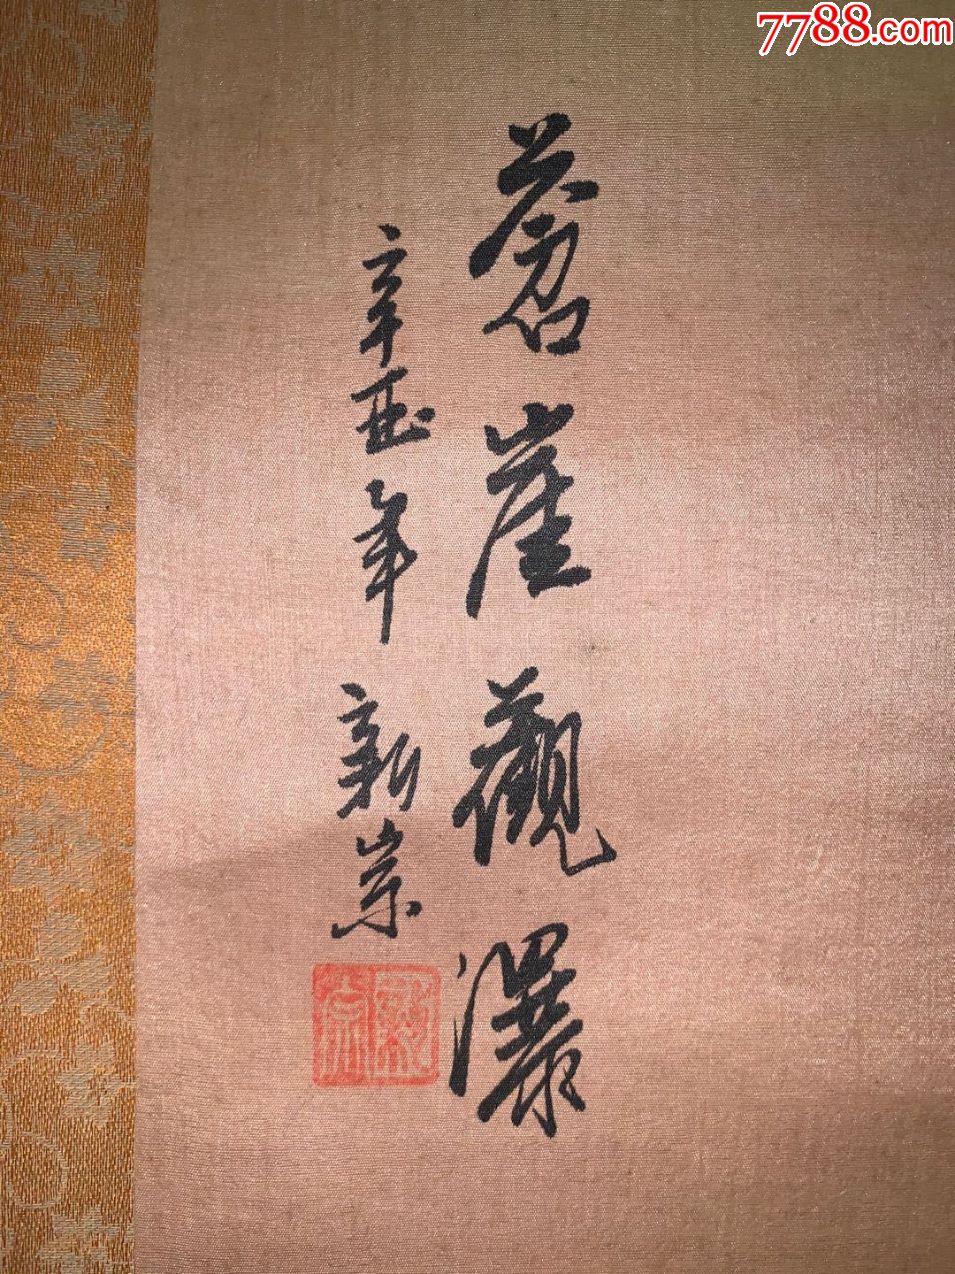 7788.com
蒼崖觀瀑
辛年 新崇